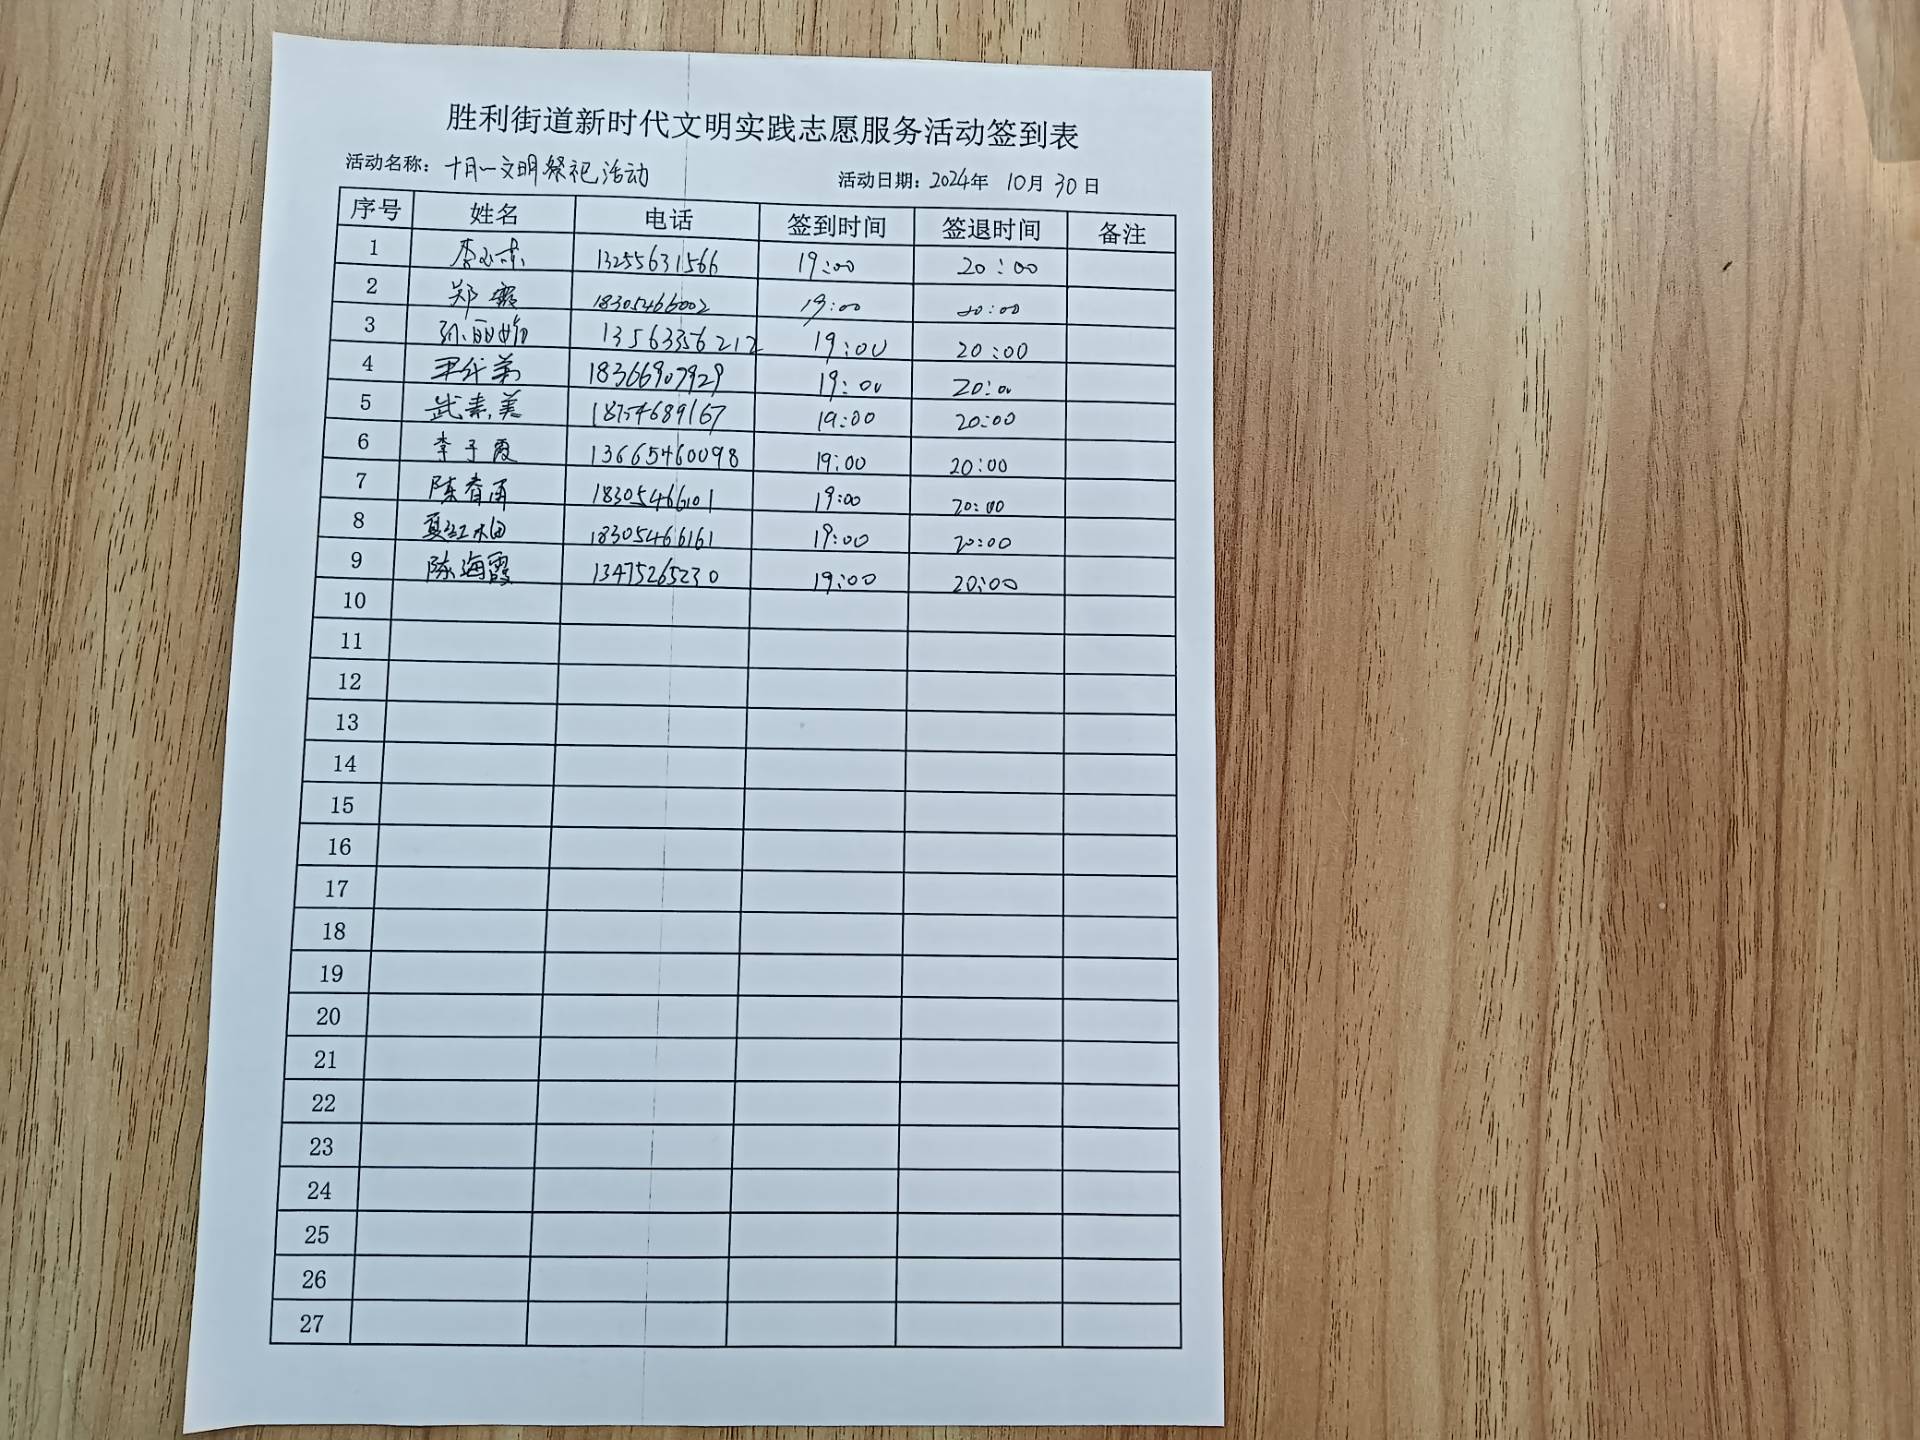 胜利街道新时代文明实践志愿服务活动签到表
活动名称：十月一文明祭祀活动 活动日期：2024年 10月 30日
序号 姓名 电话 签到时间 签退时间 备注
1 李 13255631566 19:00 20:00
2 郑霞 18305466002 19:00 20:00
3 孙丽 13563356212 19:00 20:00
4 18366907929 19:00 20:00
5 武素美 18754689167 19:00 20:00
6 李子霞 13665460098 19:00 20:00
7 陈春雨 18305466101 19:00 20:00
8 夏红 18305466161 19:00 20:00
9 陈海霞 13475265230 19:00 20:00
10
11
12
13
14
15
16
17
18
19
20
21
22
23
24
25
26
27